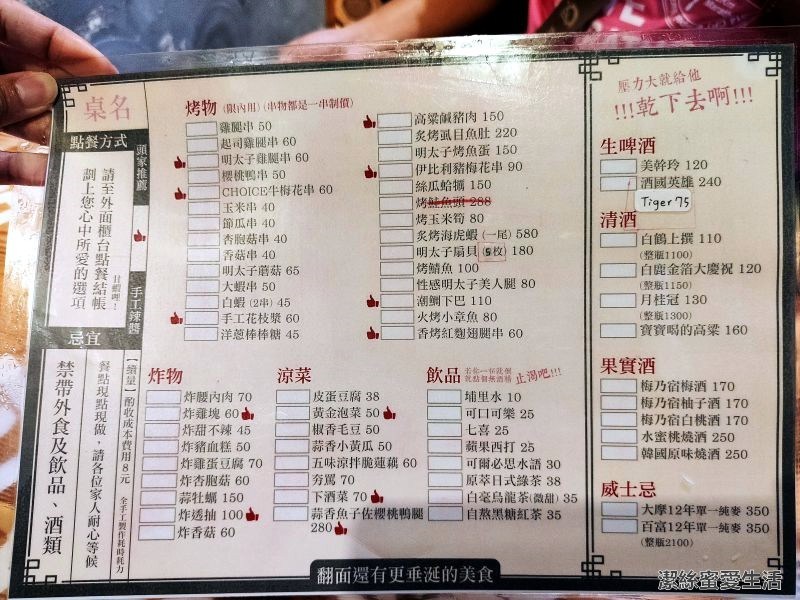 桌名
點餐方式
請至外面櫃台點餐結帳
劃上您心中所愛的選項
頭家推薦
手工辣醬
忌宜
禁帶外食及飲品、酒類
餐點現點現做,請各位家人耐心等候
【續量】酌收成本費用8元
全手工製作耗時耗力
烤物(限內用)(串物都是一串制價)
雞腿串 50
起司雞腿串 60
明太子雞腿串 60
櫻桃鴨串 50
CHOICE牛梅花串 60
玉米串 40
節瓜串 40
杏胞菇串 40
香菇串 40
明太子蘑菇 65
大蝦串 50
白蝦(2串) 45
手工花枝漿 60
洋蔥棒棒糖 45
高粱鹹豬肉 150
炙烤虱目魚肚 220
明太子烤魚蛋 150
伊比利豬梅花串 90
絲瓜蛤蠣 150
烤鮭魚頭 288
烤玉米筍 80
炙烤海虎蝦(一尾) 580
明太子扇貝(5枚) 180
烤鯖魚 100
性感明太子美人腿 80
潮鯛下巴 110
火烤小章魚 80
香烤紅麴翅腿串 60
炸物
炸腰內肉 70
炸雞塊 60
炸甜不辣 45
炸豬血糕 50
炸雞蛋豆腐 70
炸杏胞菇 60
蒜牡蠣 150
炸透抽 100
炸香菇 60
涼菜
皮蛋豆腐 38
黃金泡菜 50
椒香毛豆 50
蒜香小黃瓜 50
五味涼拌脆蓮藕 60
夯罵 70
下酒菜 70
蒜香魚子佐櫻桃鴨腿
280
飲品
止渴吧!!!
埔里水 10
可口可樂 25
七喜 25
蘋果西打 25
可爾必思水語 30
原萃日式綠茶 38
白毫烏龍茶(微甜) 35
自熬黑糖紅茶 35
壓力大就給他
!!!乾下去啊!!!
生啤酒
美幹玲 120
酒國英雄 240
Tiger 75
清酒
白鶴上撰 110
(整瓶1100)
白鹿金箔大慶祝 120
(整瓶1150)
月桂冠 130
(整瓶1300)
寶寶喝的高粱 160
果實酒
梅乃宿梅酒 170
梅乃宿柚子酒 170
梅乃宿白桃酒 170
水蜜桃燒酒 250
韓國原味燒酒 250
威士忌
大摩12年單一純麥 350
百富12年單一純麥 350
(整瓶2100)
翻面還有更垂涎的美食
潔絲蜜愛生活